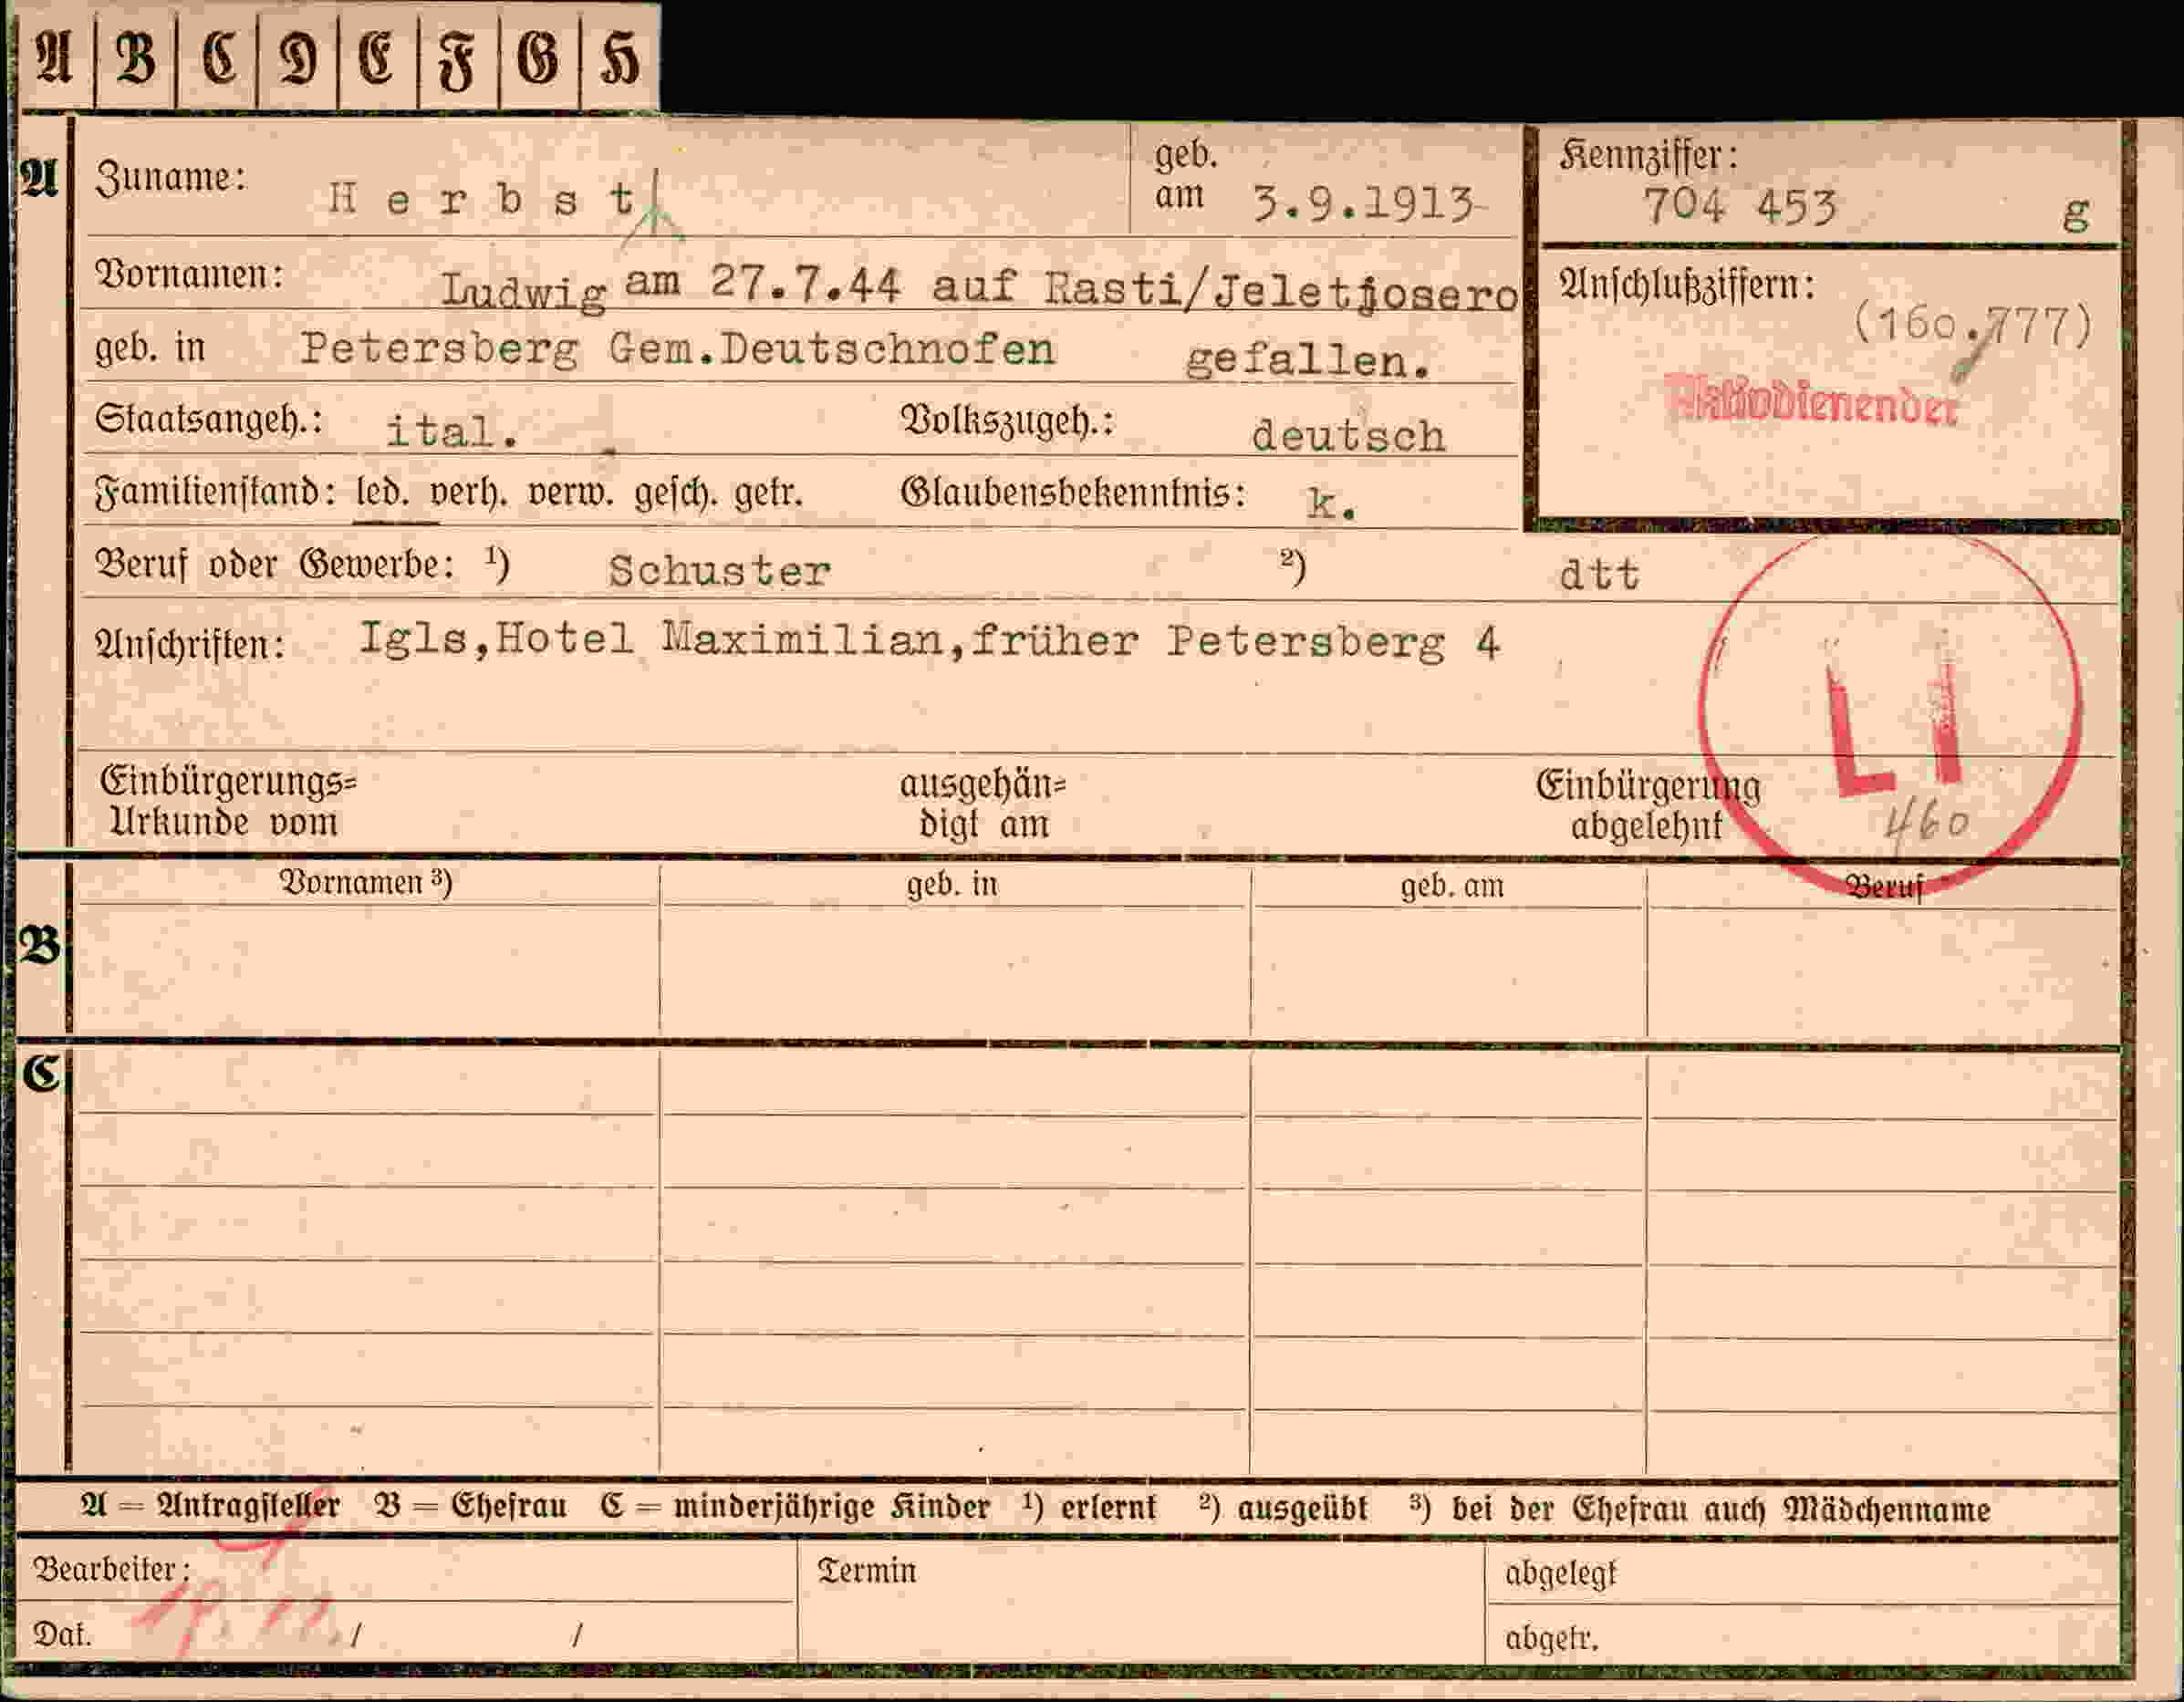 A B C D E F G H
A Zuname: Herbst geb. am 3.9.1913 Kennziffer: 704 453 g
Vornamen: Ludwig am 27.7.44 auf Rasti/Jeletjosero Anschlußziffern: (160.777)
geb. in Petersberg Gem.Deutschnofen gefallen.
Aktivdienender
Staatsangeh.: ital. Volkszugeh.: deutsch
Familienstand: led. verh. verw. gesch. getr. Glaubensbekenntnis: k.
Beruf oder Gewerbe: ¹) Schuster ²) dtt
Anschriften: Igls,Hotel Maximilian,früher Petersberg 4
L I
Einbürgerungs= ausgehän= Einbürgerung
Urkunde vom digt am abgelehnt 460
Vornamen ³) geb. in geb. am Beruf
B
C
A = Antragsteller B = Ehefrau C = minderjährige Kinder ¹) erlernt ²) ausgeübt ³) bei der Ehefrau auch Mädchenname
Bearbeiter: Termin abgelegt
Dat. / / abgetr.